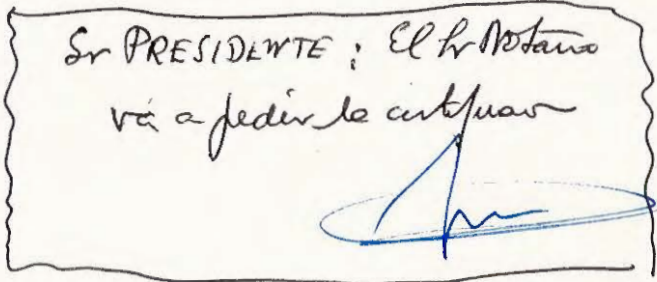 Sr PRESIDENTE : El Sr Notario
vá a pedir la certificación